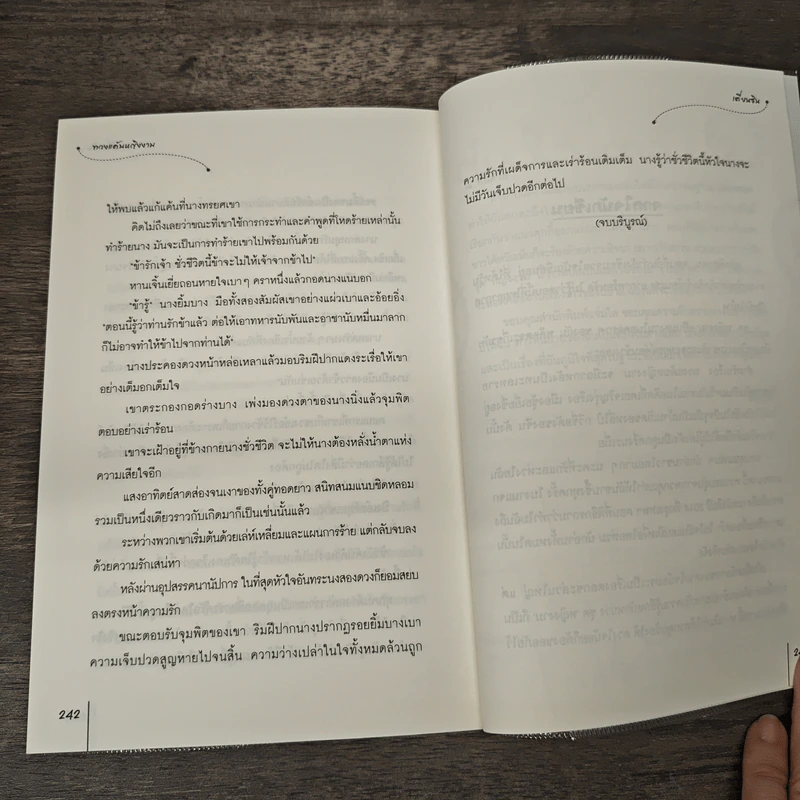 ทวงแค้นหญิงงาม
ให้พบแล้วแก้แค้นที่นางทรยศเขา
คิดไม่ถึงเลยว่าขณะที่เขาใช้การกระทำและคำพูดที่โหดร้ายเหล่านั้น
ทำร้ายนาง มันจะเป็นการทำร้ายเขาไปพร้อมกันด้วย
"ข้ารักเจ้า ชั่วชีวิตนี้ข้าจะไม่ให้เจ้าจากข้าไป"
หานเจิ้นเยี่ยถอนหายใจเบาๆ คราหนึ่งแล้วกอดนางแนบอก
"ข้ารู้" นางยิ้มบาง มือทั้งสองสัมผัสเขาอย่างแผ่วเบาและอ้อยอิ่ง
"ตอนนี้รู้ว่าท่านรักข้าแล้ว ต่อให้เอาทหารนับพันและอาชานับหมื่นมาลาก
ก็ไม่อาจทำให้ข้าไปจากท่านได้"
นางประคองดวงหน้าหล่อเหลาแล้วมอบริมฝีปากแดงระเรื่อให้เขา
อย่างเต็มอกเต็มใจ
เขาตระกองกอดร่างบาง เพ่งมองดวงตาของนางนิ่งแล้วจุมพิต
ตอบอย่างเร่าร้อน
เขาจะเฝ้าอยู่ที่ข้างกายนางชั่วชีวิต จะไม่ให้นางต้องหลั่งน้ำตาแห่ง
ความเสียใจอีก
แสงอาทิตย์สาดส่องจนเงาของทั้งคู่ทอดยาว สนิทสนมแนบชิดหลอม
รวมเป็นหนึ่งเดียวราวกับเกิดมาก็เป็นเช่นนั้นแล้ว
ระหว่างพวกเขาเริ่มต้นด้วยเล่ห์เหลี่ยมและแผนการร้าย แต่กลับจบลง
ด้วยความรักเสน่หา
หลังผ่านอุปสรรคนานัปการ ในที่สุดหัวใจอันทระนงสองดวงก็ยอมสยบ
ลงตรงหน้าความรัก
ขณะตอบรับจุมพิตของเขา ริมฝีปากนางปรากฏรอยยิ้มบางเบา
ความเจ็บปวดสูญหายไปจนสิ้น ความว่างเปล่าในใจทั้งหมดล้วนถูก
242
เตี่ยนซิน
ความรักที่เผด็จการและเร่าร้อนเติมเต็ม นางรู้ว่าชั่วชีวิตนี้หัวใจนางจะ
ไม่มีวันเจ็บปวดอีกต่อไป
(จบบริบูรณ์)